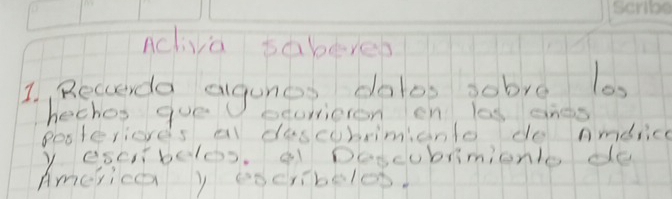 Scribe
Activa saberes
1. Recuerda algunos datos sobre los
hechos que ocurrieron en los años
posteriores al descubrimiento de América
y escribelos. el Descubrimiento de
América y escribelos.